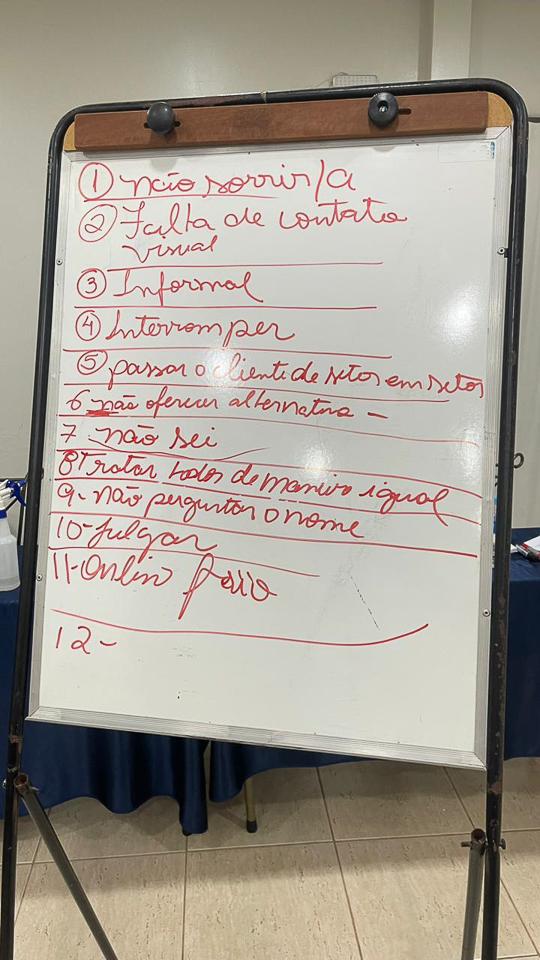 ① não sorrir/a
② Falta de contato
visual
③ Informal
④ Interromper
⑤ passar o cliente de setor em setor
6 não oferecer alternativa -
7 não sei
8 Tratar todos de maneira igual
9- não perguntar o nome
10- Julgar
11- Onlin frio
12-